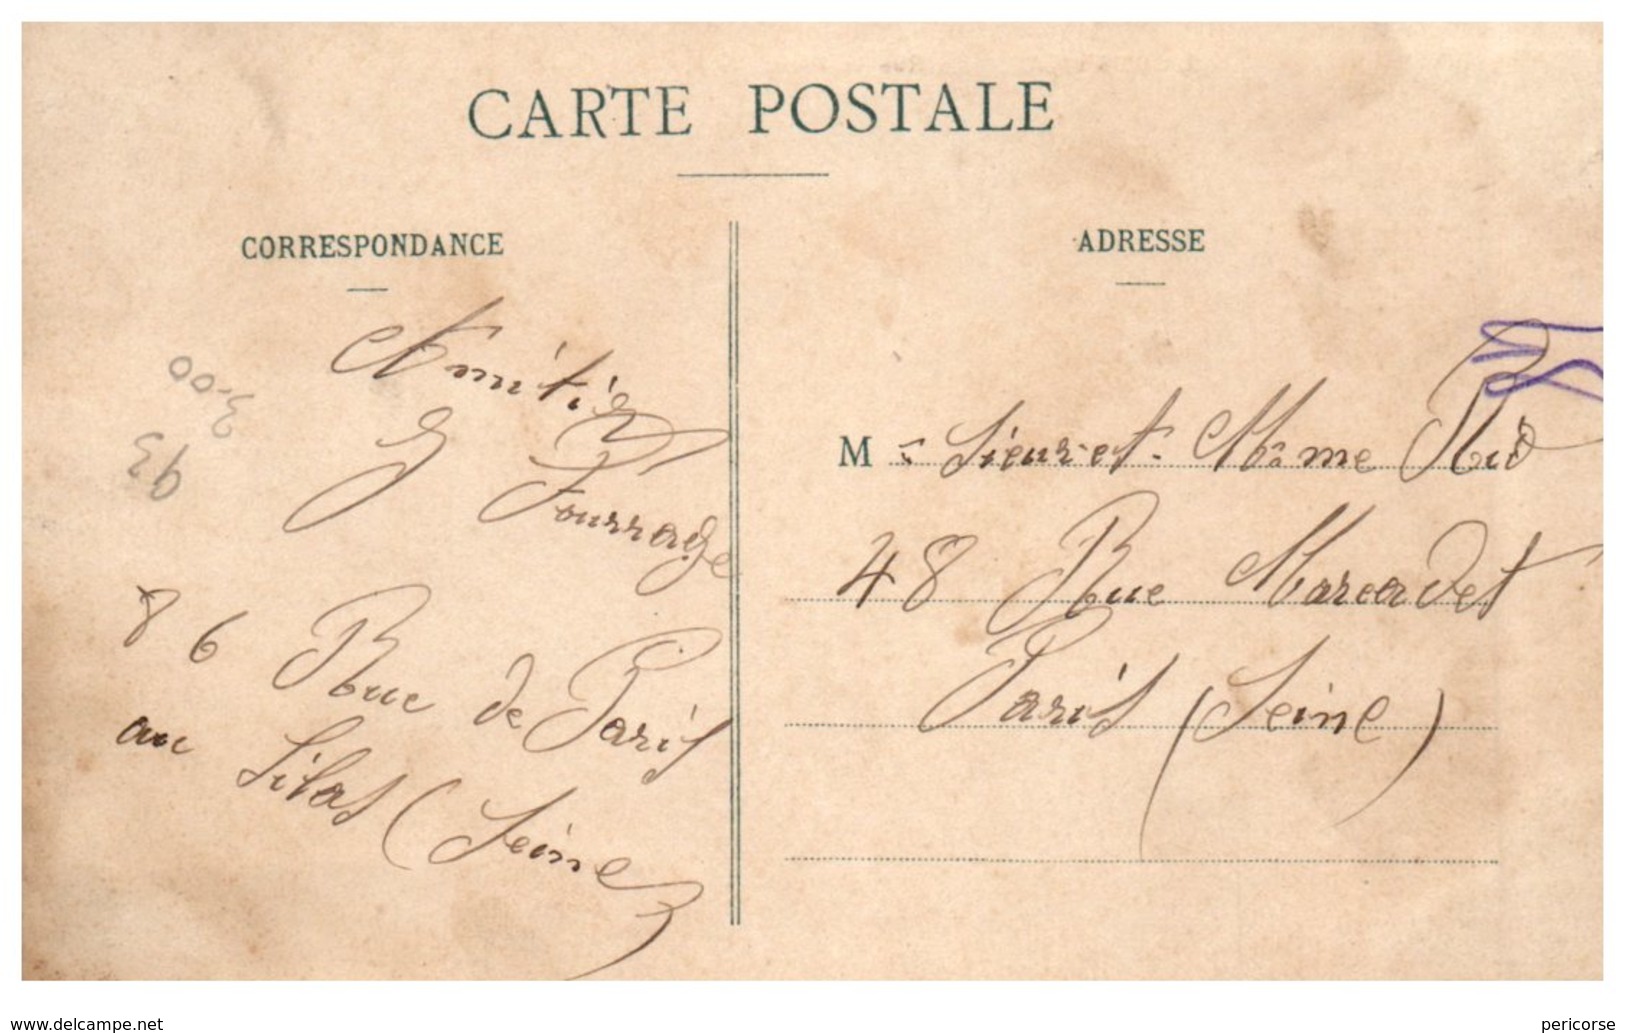 CARTE POSTALE
CORRESPONDANCE
Amitié
G Fourrage
86 Rue de Paris
au Lilas (Seine)
3-00
93
ADRESSE
M Sieur et Mme
48 Rue Marcadet
Paris (Seine)
www.delcampe.net
pericorse